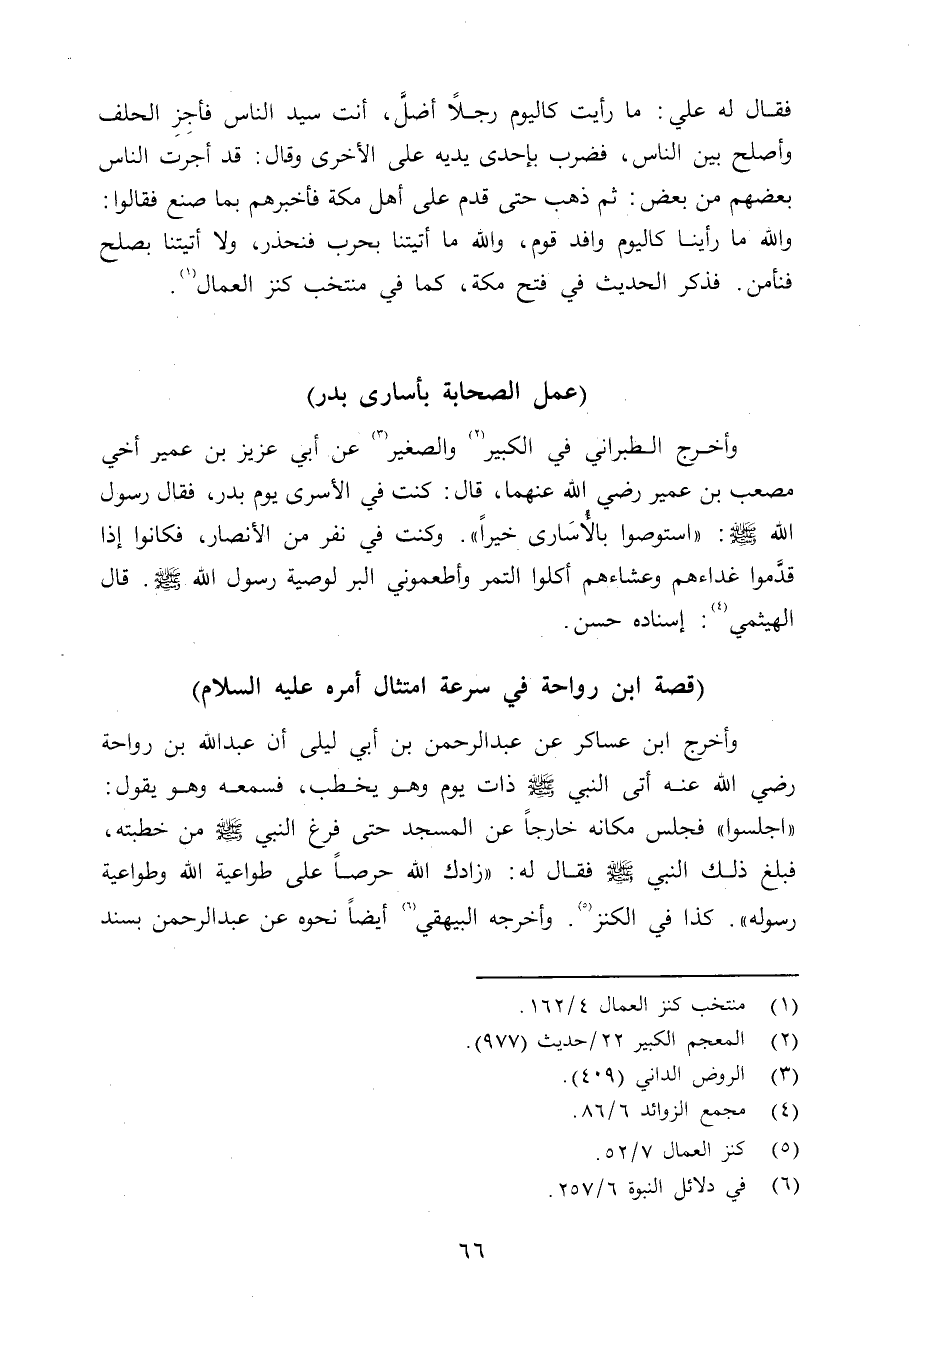 فقال له علي: ما رأيت كاليوم رجلاً أضلَّ، أنت سيد الناس فأجِز الحلف
وأصلح بين الناس، فضرب بإحدى يديه على الأخرى وقال: قد أجرت الناس
بعضهم من بعض: ثم ذهب حتى قدم على أهل مكة فأخبرهم بما صنع فقالوا:
والله ما رأينا كاليوم وافد قوم، والله ما أتيتنا بحرب فنحذر، ولا أتيتنا بصلح
فنأمن. فذكر الحديث في فتح مكة، كما في منتخب كنز العمال(١).
(عمل الصحابة بأسارى بدر)
وأخرج الطبراني في الكبير(٢) والصغير(٣) عن أبي عزيز بن عمير أخي
مصعب بن عمير رضي الله عنهما، قال: كنت في الأسرى يوم بدر، فقال رسول
الله ﷺ: «استوصوا بالأُسَارى خيراً». وكنت في نفر من الأنصار، فكانوا إذا
قدَّموا غداءهم وعشاءهم أكلوا التمر وأطعموني البر لوصية رسول الله ﷺ. قال
الهيثمي(٤): إسناده حسن.
(قصة ابن رواحة في سرعة امتثال أمره عليه السلام)
وأخرج ابن عساكر عن عبدالرحمن بن أبي ليلى أن عبدالله بن رواحة
رضي الله عنه أتى النبي ﷺ ذات يوم وهو يخطب، فسمعه وهو يقول:
«اجلسوا» فجلس مكانه خارجاً عن المسجد حتى فرغ النبي ﷺ من خطبته،
فبلغ ذلك النبي ﷺ فقال له: «زادك الله حرصاً على طواعية الله وطواعية
رسوله». كذا في الكنز(٥). وأخرجه البيهقي(٦) أيضاً نحوه عن عبدالرحمن بسند
(١) منتخب كنز العمال ٤/١٦٢.
(٢) المعجم الكبير ٢٢/حديث (٩٧٧).
(٣) الروض الداني (٤٠٩).
(٤) مجمع الزوائد ٦/٨٦.
(٥) كنز العمال ٧/٥٢.
(٦) في دلائل النبوة ٦/٢٥٧.
٦٦